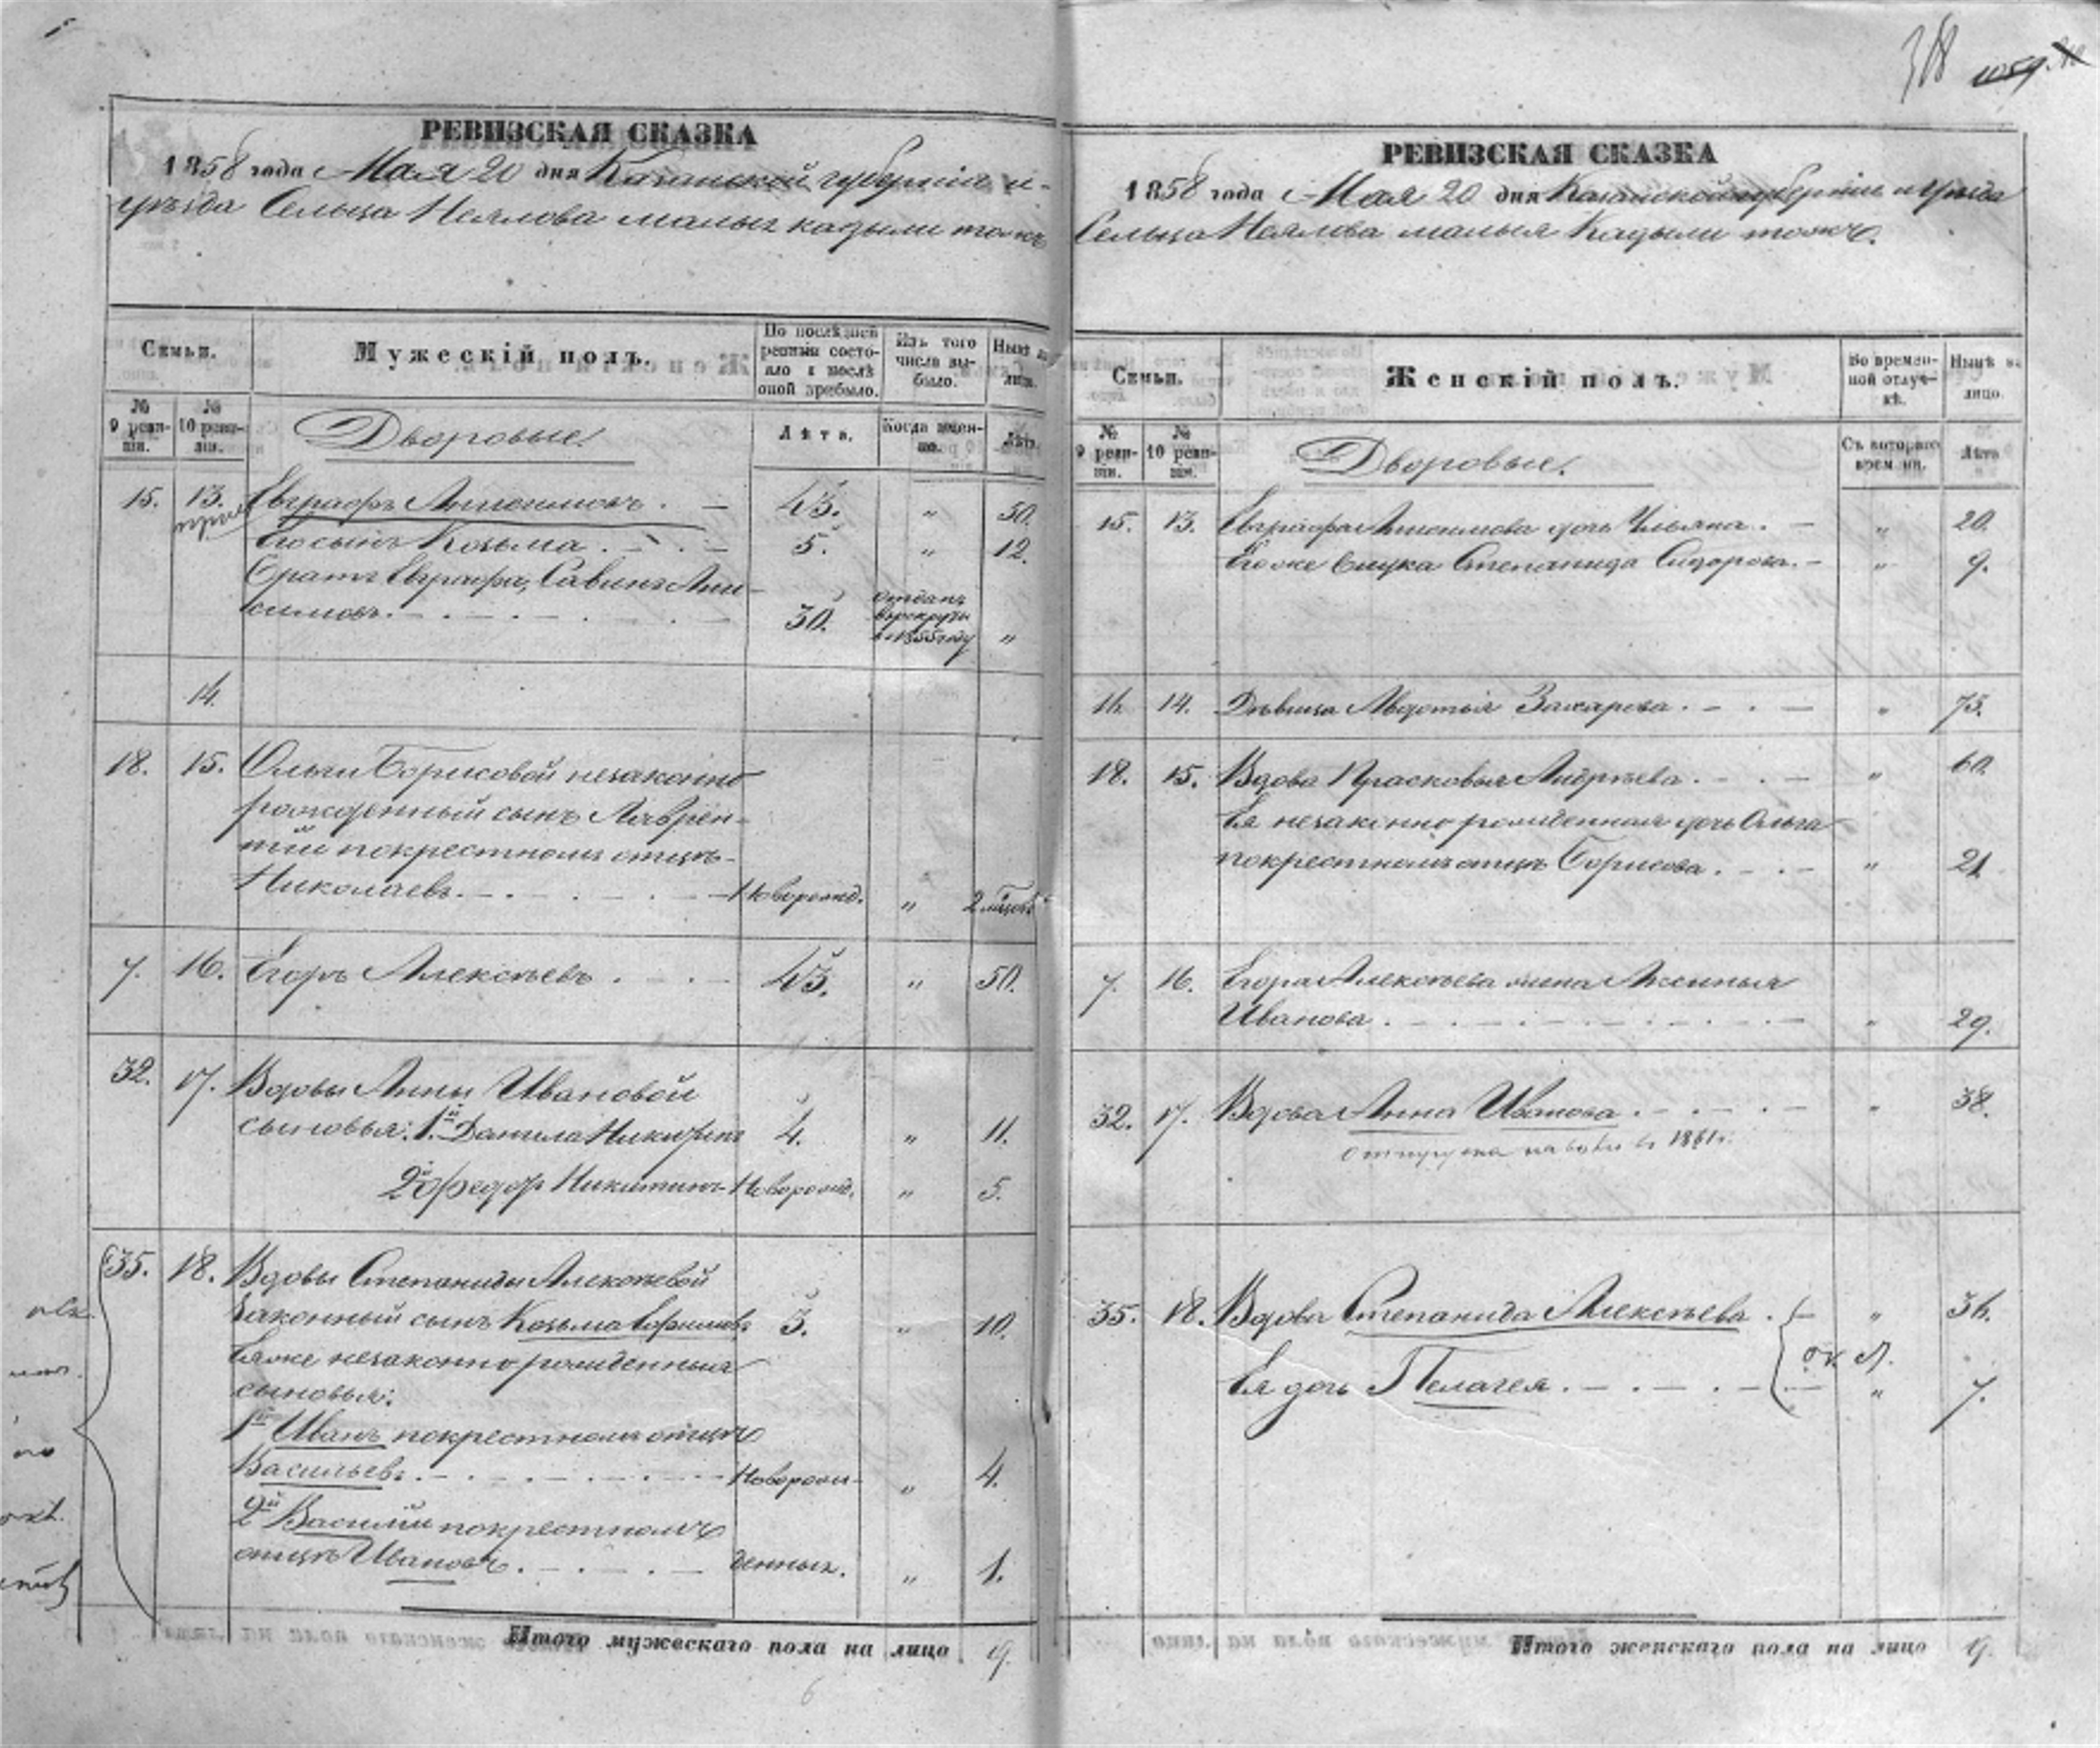 318 1059.
РЕВИЗСКАЯ СКАЗКА
1858 года Мая 20 дня Казанской губерніи и
уѣзда Сельца Неялова малыя кадыли тожъ
Семьи.
Мужескій полъ.
По послѣдней ревизіи состояло и послѣ оной прибыло.
Изъ того числа выбыло.
Нынѣ на лицо.
№ 9 ревизіи.
№ 10 ревизіи.
Дворовые.
Лѣта.
Когда именно.
Лѣта.
15. 13. Евграфъ Анисимовъ. 43. " 50.
Его сынъ Козьма. 5. " 12.
Братъ Евграфа, Савинъ Ани-
симовъ. 30. отданъ в рекруты в 1855 году "
14.
18. 15. Ольги Борисовой незаконно
рожденный сынъ Лаврен-
тій по крестномъ отцѣ
Николаевъ. Новорожд. " 2
7. 16. Егоръ Алексѣевъ 43. " 50.
32. 17. Вдовы Анны Ивановой
сыновья: 1й Данила Никитинъ 4. " 11.
2й Федоръ Никитинъ Новорожд. " 5.
35. 18. Вдовы Степаниды Алексѣевой
законный сынъ Козьма Ефимовъ 3. " 10.
Ея же незаконно рожденныя
сыновья:
1й Иванъ по крестномъ отцѣ
Васильевъ. Новорож- " 4.
2й Василій по крестномъ
отцѣ Ивановъ. денныя. " 1.
Итого мужескаго пола на лицо 9.
6
РЕВИЗСКАЯ СКАЗКА
1858 года Мая 20 дня Казанской губерніи и уѣзда
Сельца Неялова малыя Кадыли тожъ.
Семьи.
Женскій полъ.
Во временной отлучкѣ.
Нынѣ на лицо.
№ 9 ревизіи.
№ 10 ревизіи.
Дворовые.
Съ котораго времени.
Лѣта
15. 13. Евграфа Анисимова дочь Ульяна. " 20.
Его же внука Степанида Сидорова. " 9.
16. 14. Дѣвица Авдотья Захарова. " 75.
18. 15. Вдова Прасковья Андрѣева. " 60.
Ея незаконно рожденная дочь Ольга
по крестномъ отцѣ Борисова. " 21
7. 16. Егора Алексѣева жена Аксинья
Иванова. " 29.
32. 17. Вдова Анна Иванова. " 38.
отпущена на волю в 1861г.
35. 18. Вдова Степанида Алексѣева. " 36.
Ея дочь Пелагея. " 7.
Итого женскаго пола на лицо 9.